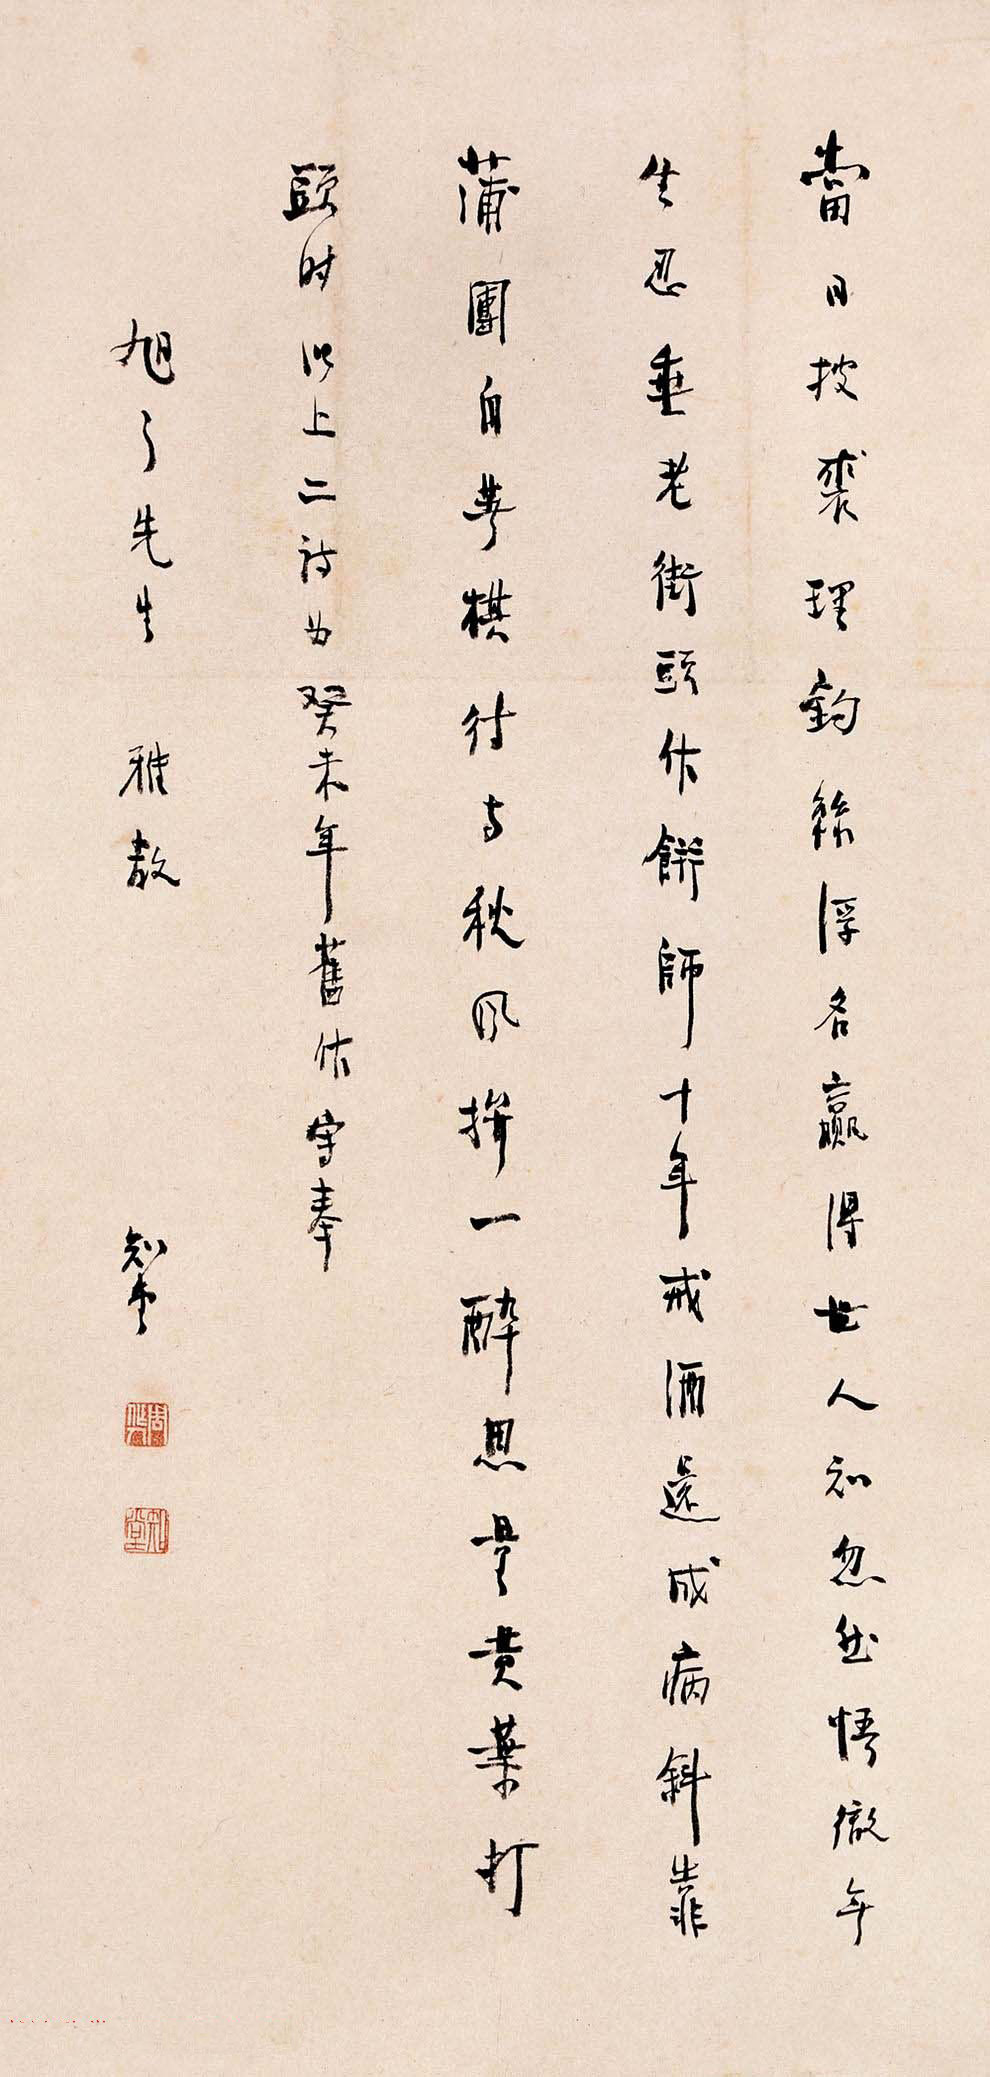 當日披裘理釣絲浮名贏得世人知忽然悟徹無
生忍垂老街頭作餅師十年戒酒還成病斜靠
蒲團自著棋待与秋風拚一醉思量黃葉打
頭时以上二詩为癸未年舊作寫奉
旭了先生 雅教 知堂
知堂